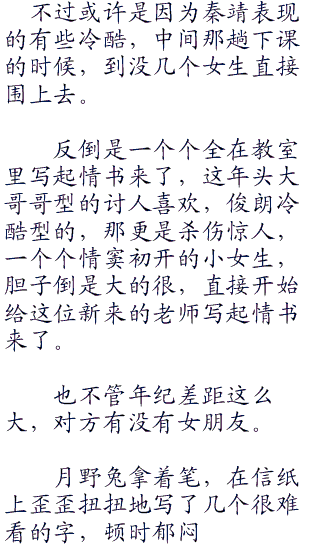 不过或许是因为秦靖表现
的有些冷酷，中间那趟下课
的时候，到没几个女生直接
围上去。
反倒是一个个全在教室
里写起情书来了，这年头大
哥哥型的讨人喜欢，俊朗冷
酷型的，那更是杀伤惊人，
一个个情窦初开的小女生，
胆子倒是大的很，直接开始
给这位新来的老师写起情书
来了。
也不管年纪差距这么
大，对方有没有女朋友。
月野兔拿着笔，在信纸
上歪歪扭扭地写了几个很难
看的字，顿时郁闷